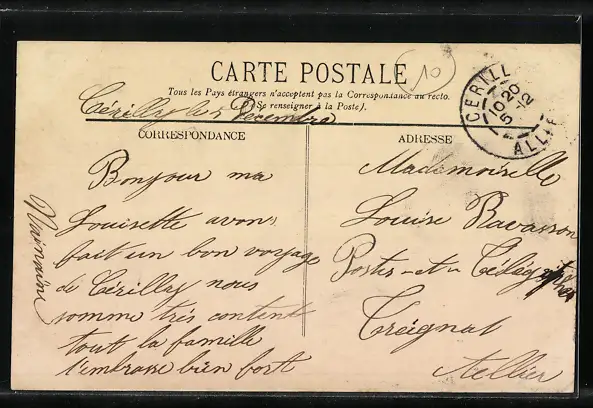 CARTE POSTALE
10
Tous les Pays étrangers n'acceptent pas la Correspondance au recto.
(Se renseigner à la Poste).
CERILLY
10 20
5 -12
ALLIER
Cérilly le 5 Décembre
CORRESPONDANCE
Bonjour ma
Louisette avons
fait un bon voyage
de Cérilly nous
somme très content
tout la famille
t'embrasse bien fort
ADRESSE
Mademoiselle
Louise Bavasson
Postes et Télégraphes
Treignat
Allier